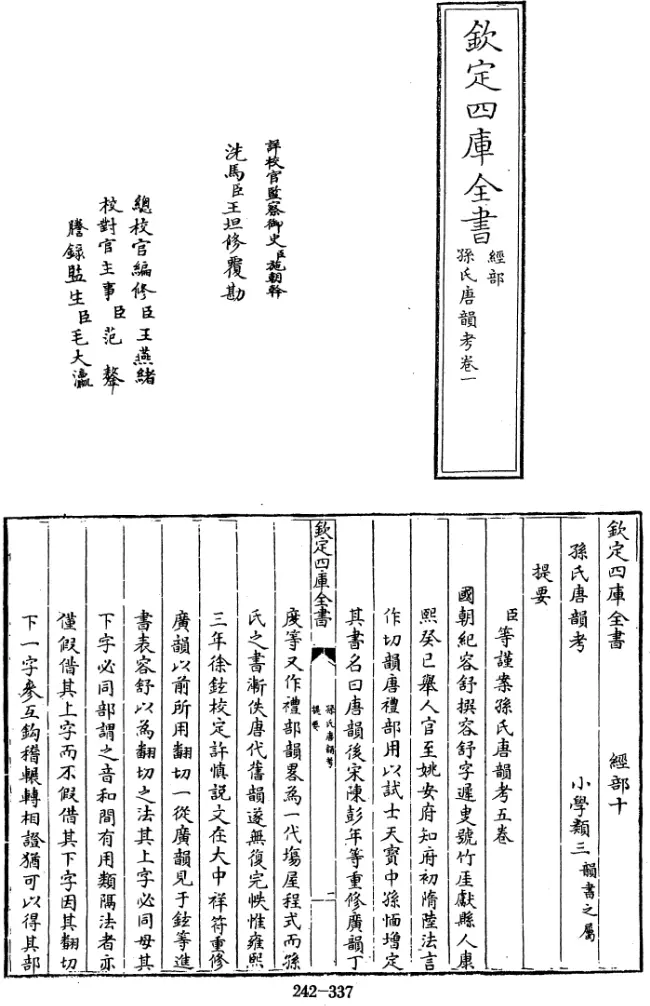 欽定四庫全書
經部
孫氏唐韻考卷一
詳校官監察御史臣施朝幹
洗馬臣王坦修覆勘
總校官編修臣王燕緒
校對官主事臣范鏊
謄錄監生臣毛大瀛
欽定四庫全書 經部十
孫氏唐韻考 小學類三韻書之屬
提要
臣等謹案孫氏唐韻考五卷
國朝紀容舒撰容舒字遲叟號竹厓獻縣人康
熙癸巳舉人官至姚安府知府初隋陸法言
作切韻唐禮部用以試士天寳中孫愐增定
其書名曰唐韻後宋陳彭年等重修廣韻丁
欽定四庫全書
孫氏唐韻考
提要
度等又作禮部韻畧為一代塲屋程式而孫
氏之書漸佚唐代舊韻遂無復完帙惟雍熙
三年徐鉉校定許慎説文在大中祥符重修
廣韻以前所用翻切一從唐韻見于鉉等進
書表容舒以為翻切之法其上字必同母其
下字必同部謂之音和間有用類隔法者亦
僅假借其上字而不假借其下字因其翻切
下一字參互鈎稽輾轉相證猶可以得其部
242-337